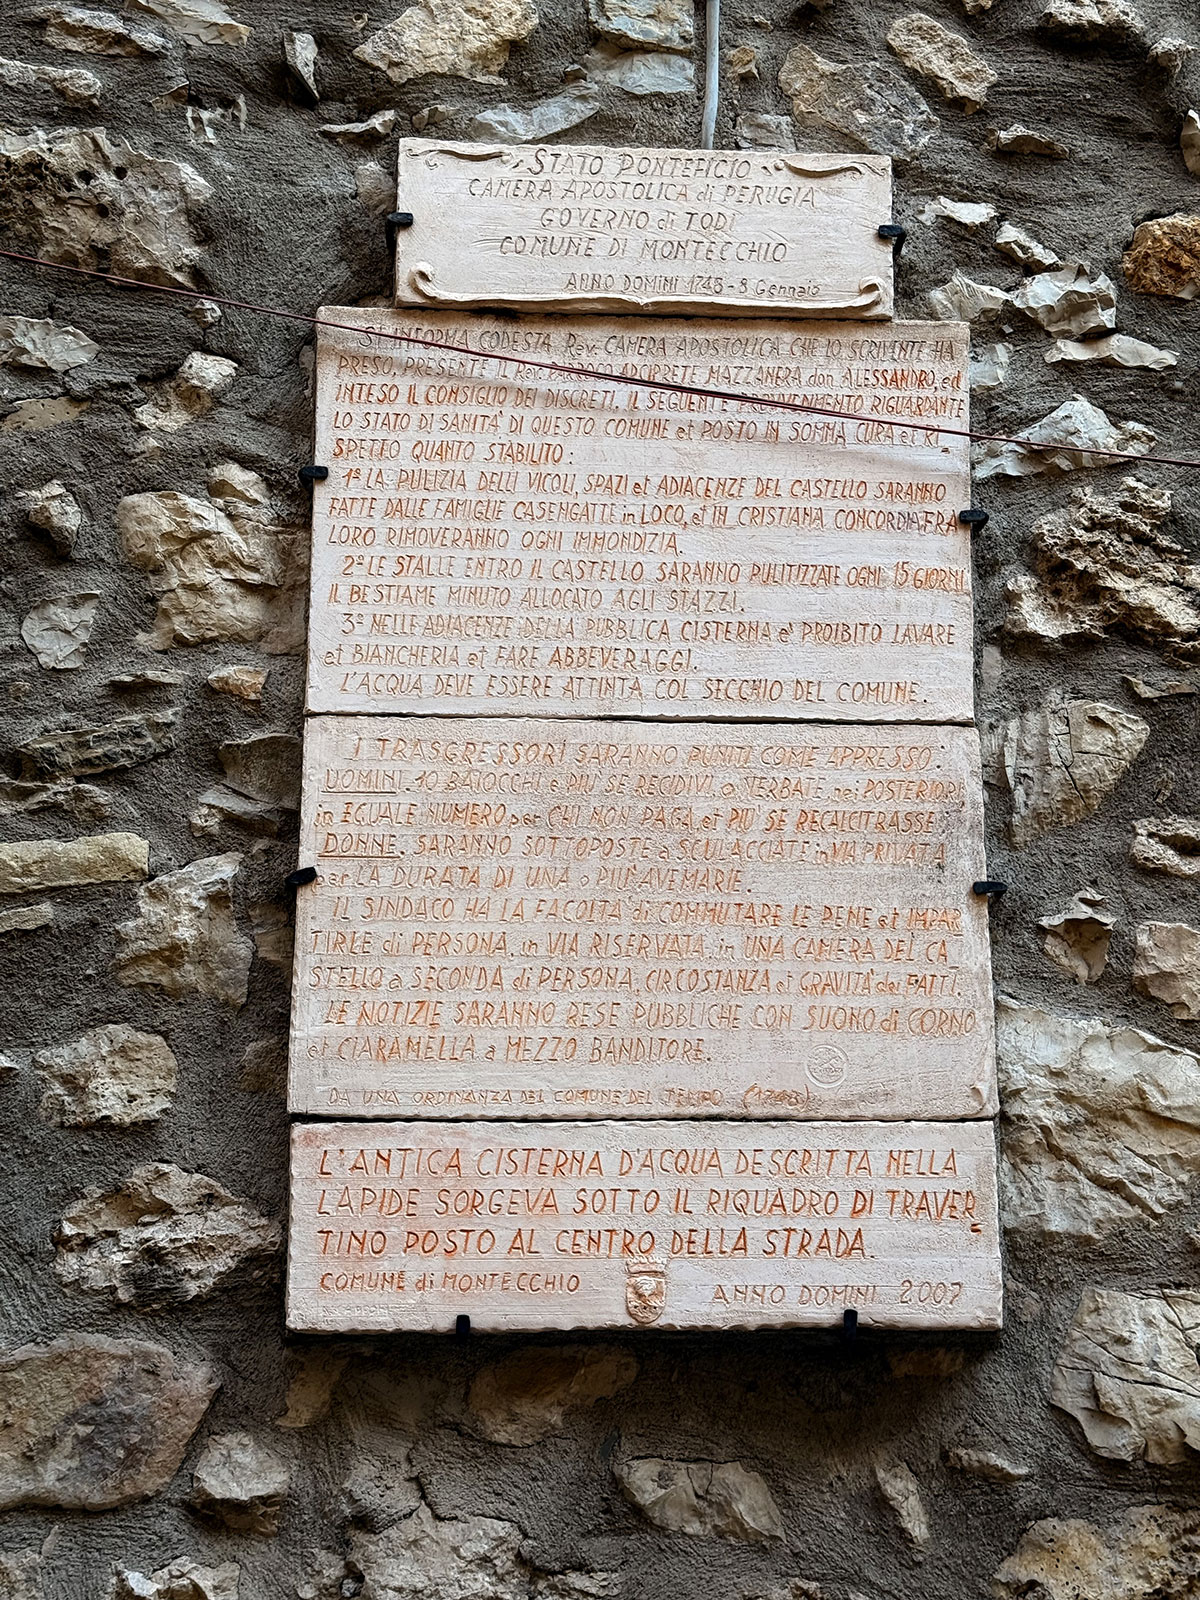 STATO PONTEFICIO
CAMERA APOSTOLICA di PERUGIA
GOVERNO di TODI
COMUNE DI MONTECCHIO
ANNO DOMINI 1748 - 8 Gennaio
SI INFORMA CODESTA Rev. CAMERA APOSTOLICA CHE LO SCRIVENTE HA
PRESO, PRESENTE IL Rev. PARROCO ARCIPRETE MAZZANERA don ALESSANDRO, ed
INTESO IL CONSIGLIO DEI DISCRETI, IL SEGUENTE PROVVENIMENTO RIGUARDANTE
LO STATO DI SANITA' DI QUESTO COMUNE et POSTO IN SOMMA CURA et RI_
SPETTO QUANTO STABILITO:
1° LA PULIZIA DELLI VICOLI, SPAZI et ADIACENZE DEL CASTELLO SARANNO
FATTE DALLE FAMIGLIE CASENGATTE in LOCO, et IN CRISTIANA CONCORDIA FRA
LORO RIMOVERANNO OGNI IMMONDIZIA.
2° LE STALLE ENTRO IL CASTELLO SARANNO PULITIZZATE OGNI 15 GIORNI
IL BESTIAME MINUTO ALLOCATO AGLI STAZZI.
3° NELLE ADIACENZE DELLA PUBBLICA CISTERNA e' PROIBITO LAVARE
et BIANCHERIA et FARE ABBEVERAGGI.
L'ACQUA DEVE ESSERE ATTINTA COL SECCHIO DEL COMUNE.
I TRASGRESSORI SARANNO PUNITI COME APPRESSO:
UOMINI. 10 BAIOCCHI e PIU' SE RECIDIVI, o VERBATE nei POSTERIORI
in EGUALE NUMERO per CHI NON PAGA, et PIU' SE RECALCITRASSE.
DONNE. SARANNO SOTTOPOSTE a SCULACCIATE in VIA PRIVATA
per LA DURATA DI UNA o PIU' AVEMARIE.
IL SINDACO HA LA FACOLTA' di COMMUTARE LE PENE et IMPAR_
TIRLE di PERSONA, in VIA RISERVATA, in UNA CAMERA DEL CA_
STELLO a SECONDA di PERSONA, CIRCOSTANZA et GRAVITA' dei FATTI.
LE NOTIZIE SARANNO RESE PUBBLICHE CON SUONO di CORNO
et CIARAMELLA a MEZZO BANDITORE.
DA UNA ORDINANZA DEL COMUNE DEL TEMPO (1748)
L'ANTICA CISTERNA D'ACQUA DESCRITTA NELLA
LAPIDE SORGEVA SOTTO IL RIQUADRO DI TRAVER_
TINO POSTO AL CENTRO DELLA STRADA.
COMUNE di MONTECCHIO ANNO DOMINI 2007